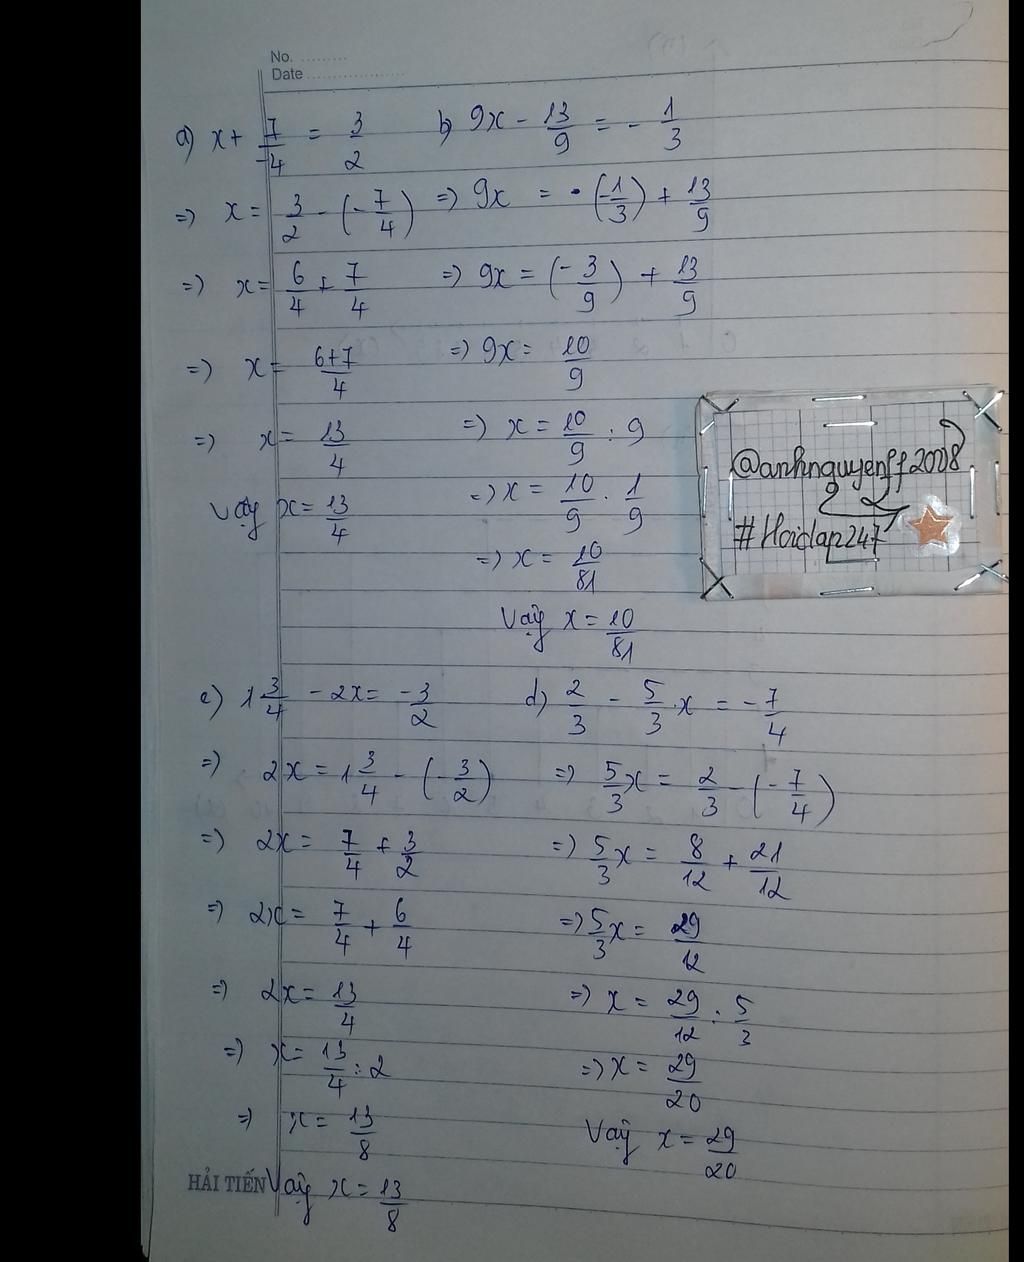 No. ..........
Date ....................
a) x + 7/-4 = 3/2
=) x = 3/2 - (-7/4)
=) x = 6/4 + 7/4
=) x = 6+7/4
=) x = 13/4
Vậy x = 13/4
b) 9x - 13/9 = - 1/3
=) 9x = (-1/3) + 13/9
=) 9x = (-3/9) + 13/9
=) 9x = 10/9
=) x = 10/9 : 9
=) x = 10/9 . 1/9
=) x = 10/81
Vậy x = 10/81
@anhnguyenff2008
#Hoidap247
c) 1 3/4 - 2x = -3/2
=) 2x = 1 3/4 - (-3/2)
=) 2x = 7/4 + 3/2
=) 2x = 7/4 + 6/4
=) 2x = 13/4
=) x = 13/4 : 2
=) x = 13/8
Vậy x = 13/8
d) 2/3 - 5/3 . x = - 7/4
=) 5/3 x = 2/3 - (-7/4)
=) 5/3 x = 8/12 + 21/12
=) 5/3 x = 29/12
=) x = 29/12 : 5/3
=) x = 29/20
Vậy x = 29/20
HẢI TIẾN